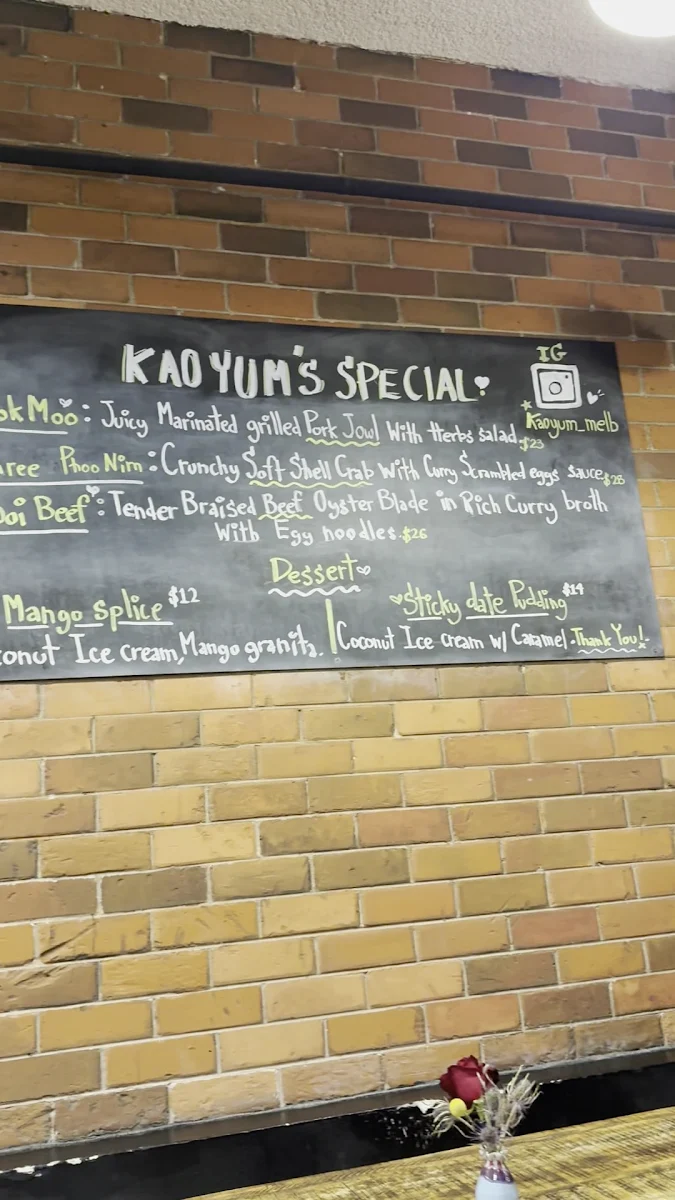 KAOYUM'S SPECIAL
IG
Kaoyum_melb
okMoo: Juicy Marinated grilled Pork Jowl With Herbs Salad. $23
aree Phoo Nim: Crunchy Soft Shell Crab With Curry Scrambled eggs Sauce
oi Beef: Tender Braised Beef Oyster Blade in Rich Curry broth
With Egg noodles. $26
Dessert
Mango Splice $12
conut Ice cream, Mango granita.
Sticky date Pudding $14
Coconut Ice cream w/ Caramel
-Thank You!-